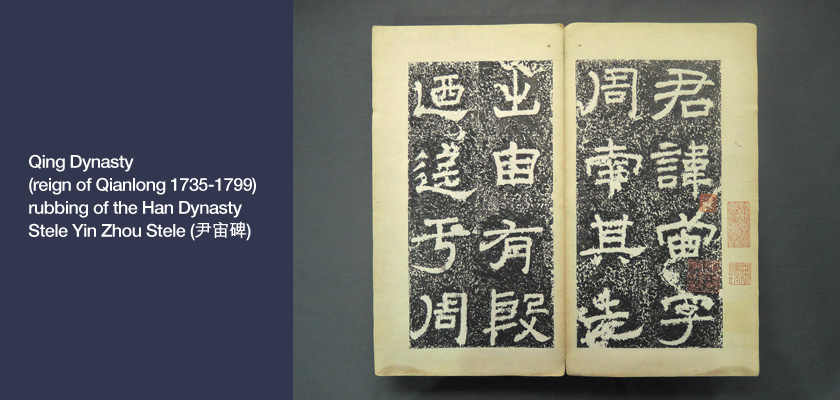 Qing Dynasty
(reign of Qianlong 1735-1799)
rubbing of the Han Dynasty
Stele Yin Zhou Stele (尹宙碑)
君諱宙字
周南其先
出自有殷
迺迄于周